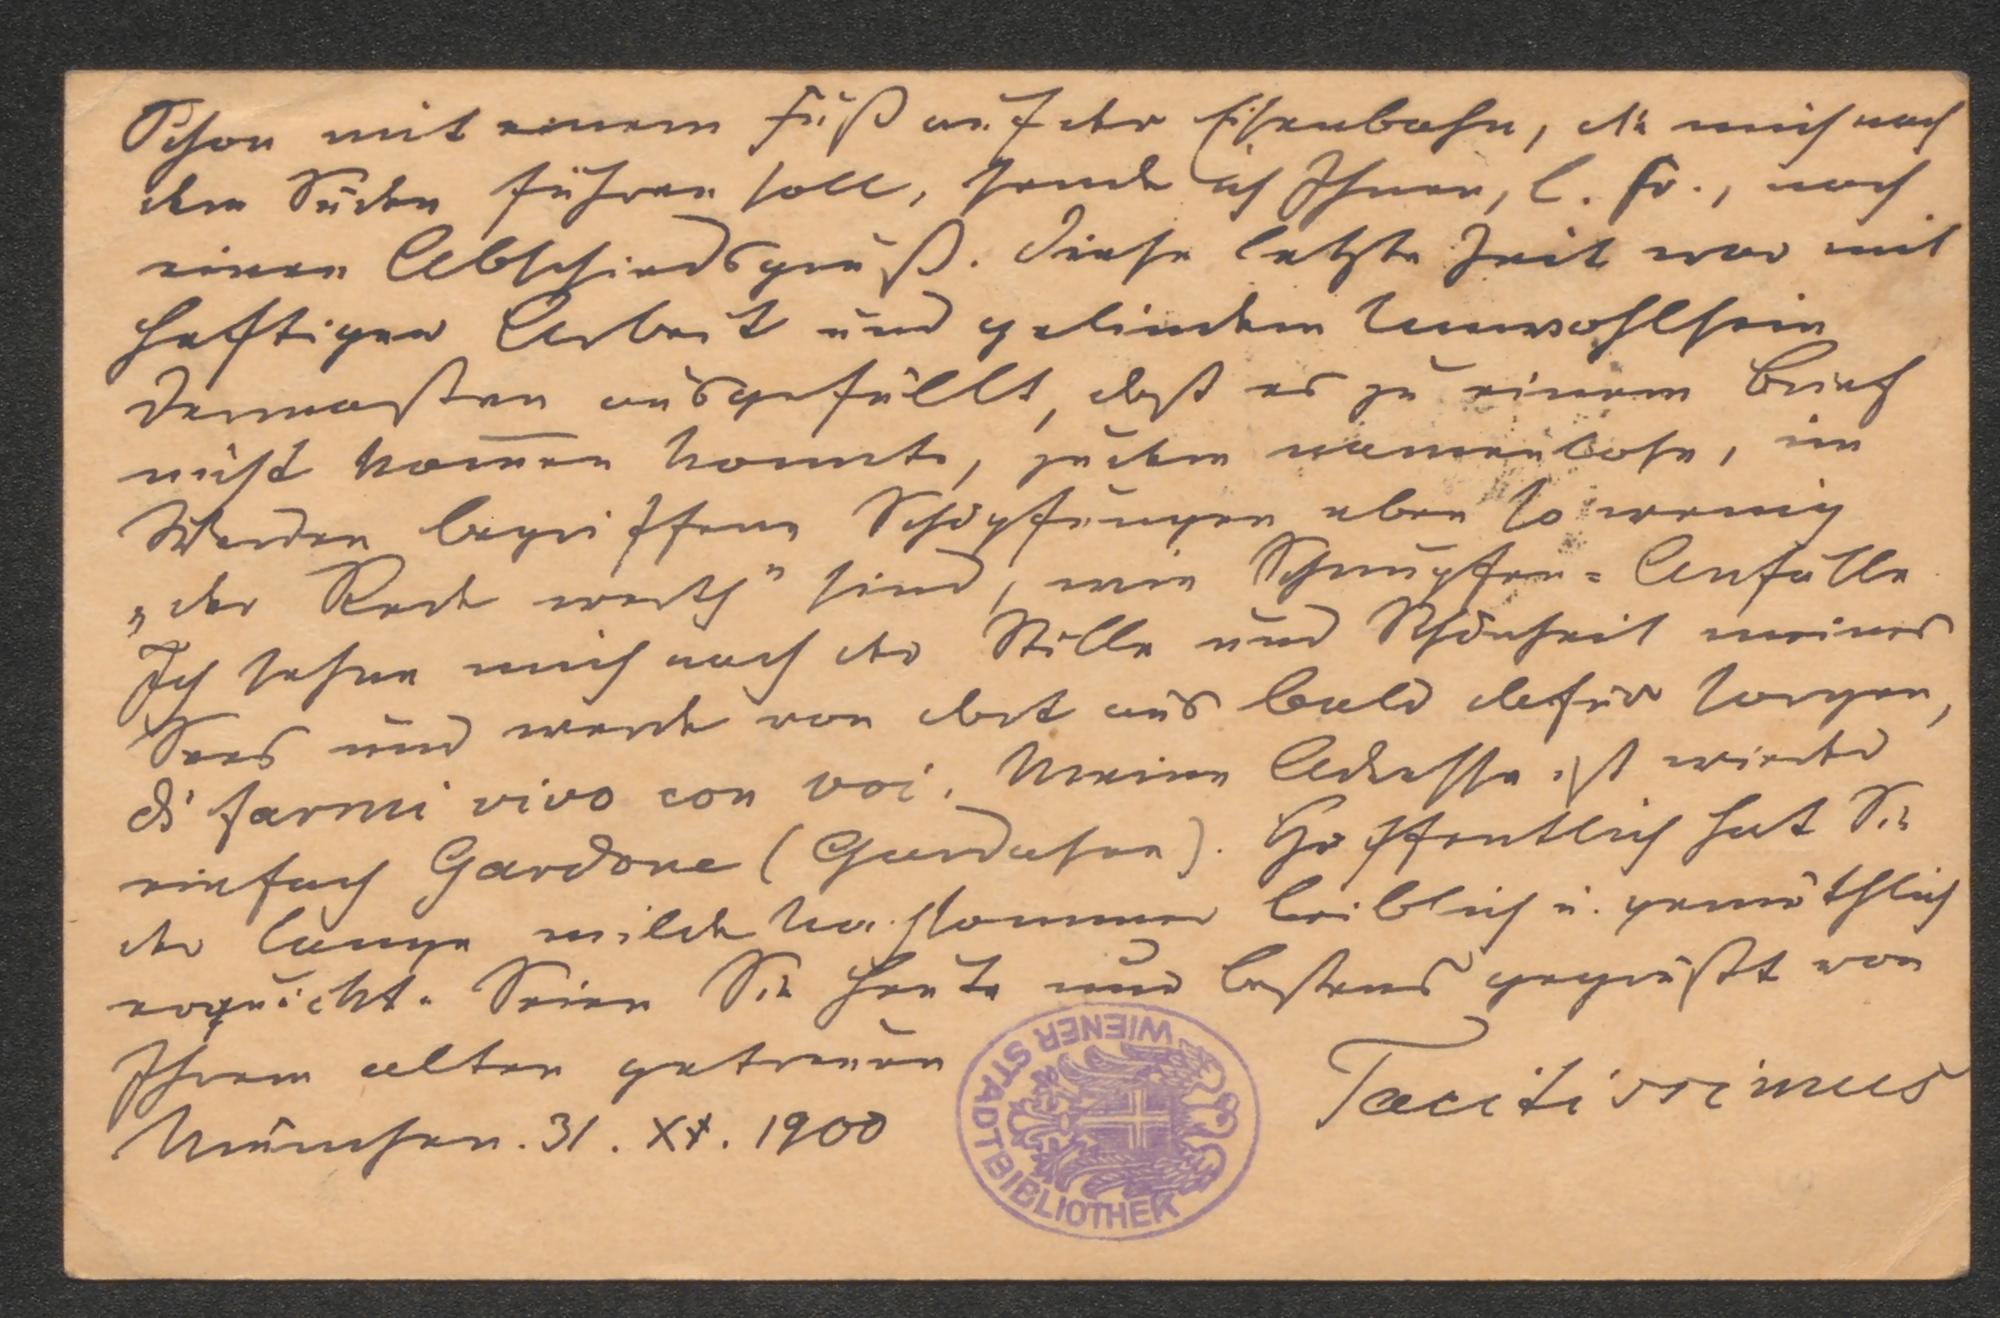 Schon mit einem Fuß auf der Eisenbahn, die mich nach
dem Süden führen soll, sende ich Ihnen, l. Fr., noch
einen Abschiedsgruß. Diese letzte Zeit war mit
heftiger Arbeit und gelindem Unwohlsein
dermaßen ausgefüllt, daß es zu einem Brief
nicht kom̅en konnte, zudem namenlose, im
Werden begriffene Schöpfungen eben so wenig
„der Rede werth" sind, wie Schnupfen-Anfälle
Ich sehne mich nach der Stille und Schönheit meines
Sees und werde von dort aus bald dafür sorgen,
di farmi vivo con voi. Meine Adresse ist wieder
einfach Gardone (Gardasee). Hoffentlich hat Sie
der lange milde Nachsommer leiblich u. gemüthlich
erquickt. Seien Sie heute nur bestens gegrüßt von
Ihrem alten getreuen
Tacitissimus
München. 31. XI. 1900
WIENER STADTBIBLIOTHEK